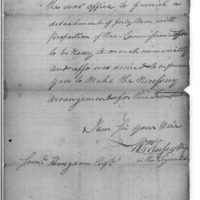 the War office to furnish a
detachment of forty Men, with
proportion of Non Commission'd officers
to be Ready to march immediately
and also was desired to inform
you to Make the Necessary
arrangements for this
I am Sir your
Saml. Hodgdon Esqr.